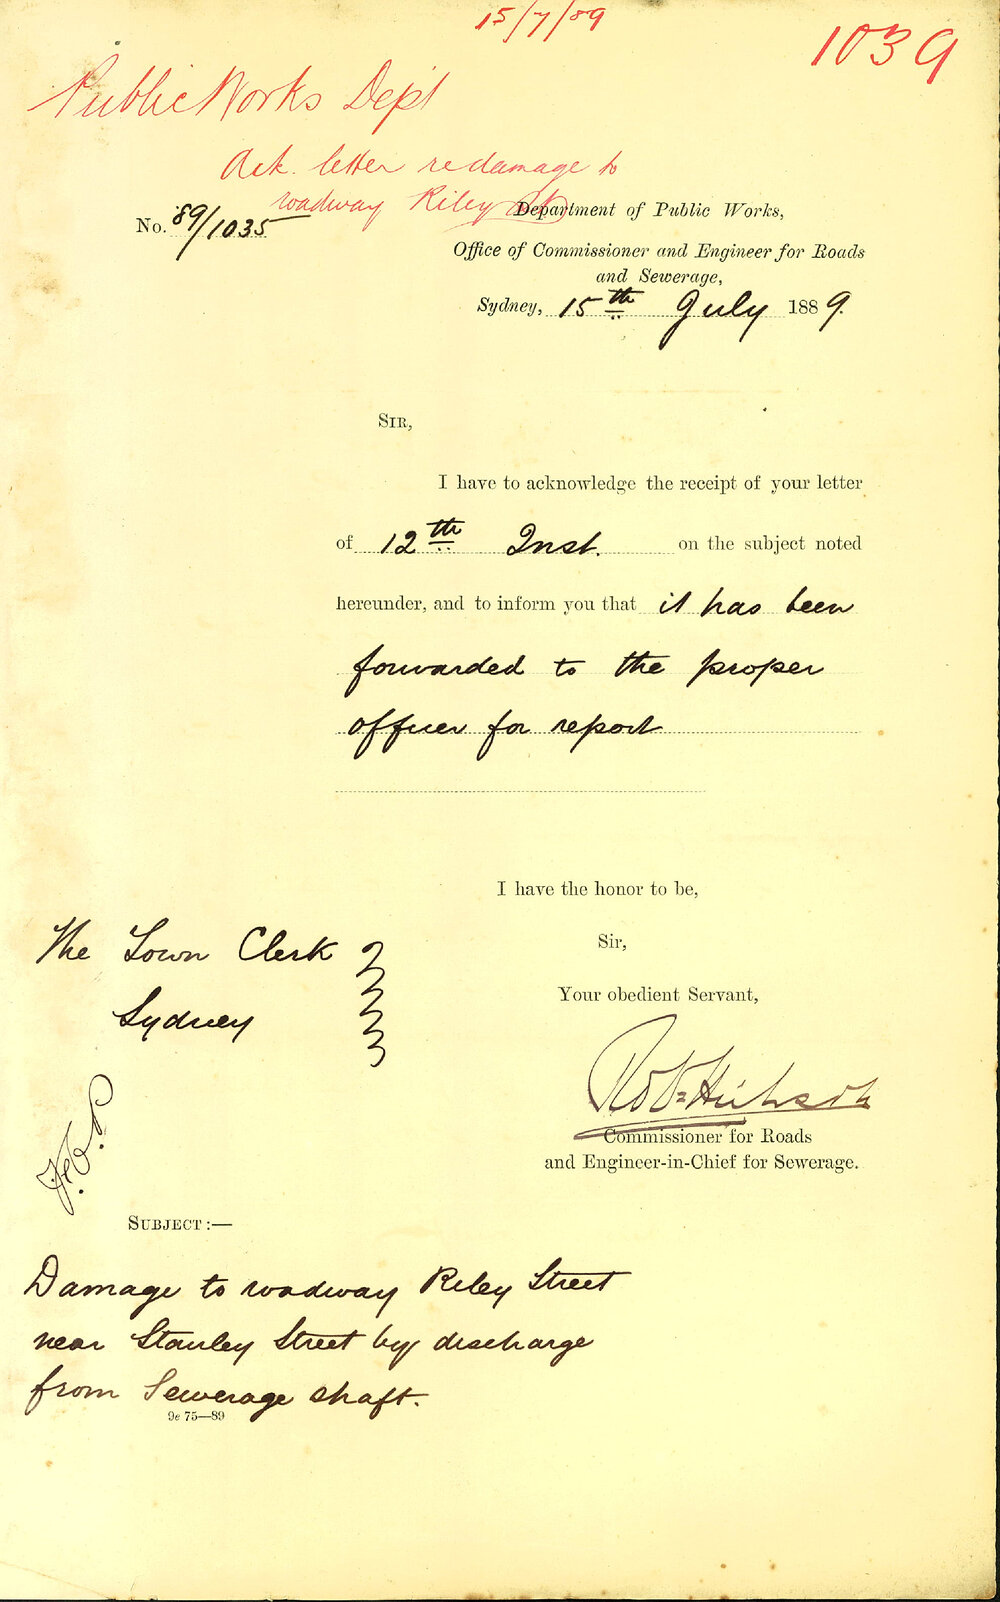 15/7/89
1039
Public Works Dept
Ack. letter re damage to
roadway Riley St
No. 89/1035
Department of Public Works,
Office of Commissioner and Engineer for Roads
and Sewerage,
Sydney, 15th July 1889.
SIR,
I have to acknowledge the receipt of your letter
of 12th Inst. on the subject noted
hereunder, and to inform you that it has been
forwarded to the proper
officer for report
I have the honor to be,
Sir,
Your obedient Servant,
The Town Clerk
Sydney
Robt Hickson
Commissioner for Roads
and Engineer-in-Chief for Sewerage.
SUBJECT:—
Damage to roadway Riley Street
near Stanley Street by discharge
from Sewerage shaft.
9e 75—89